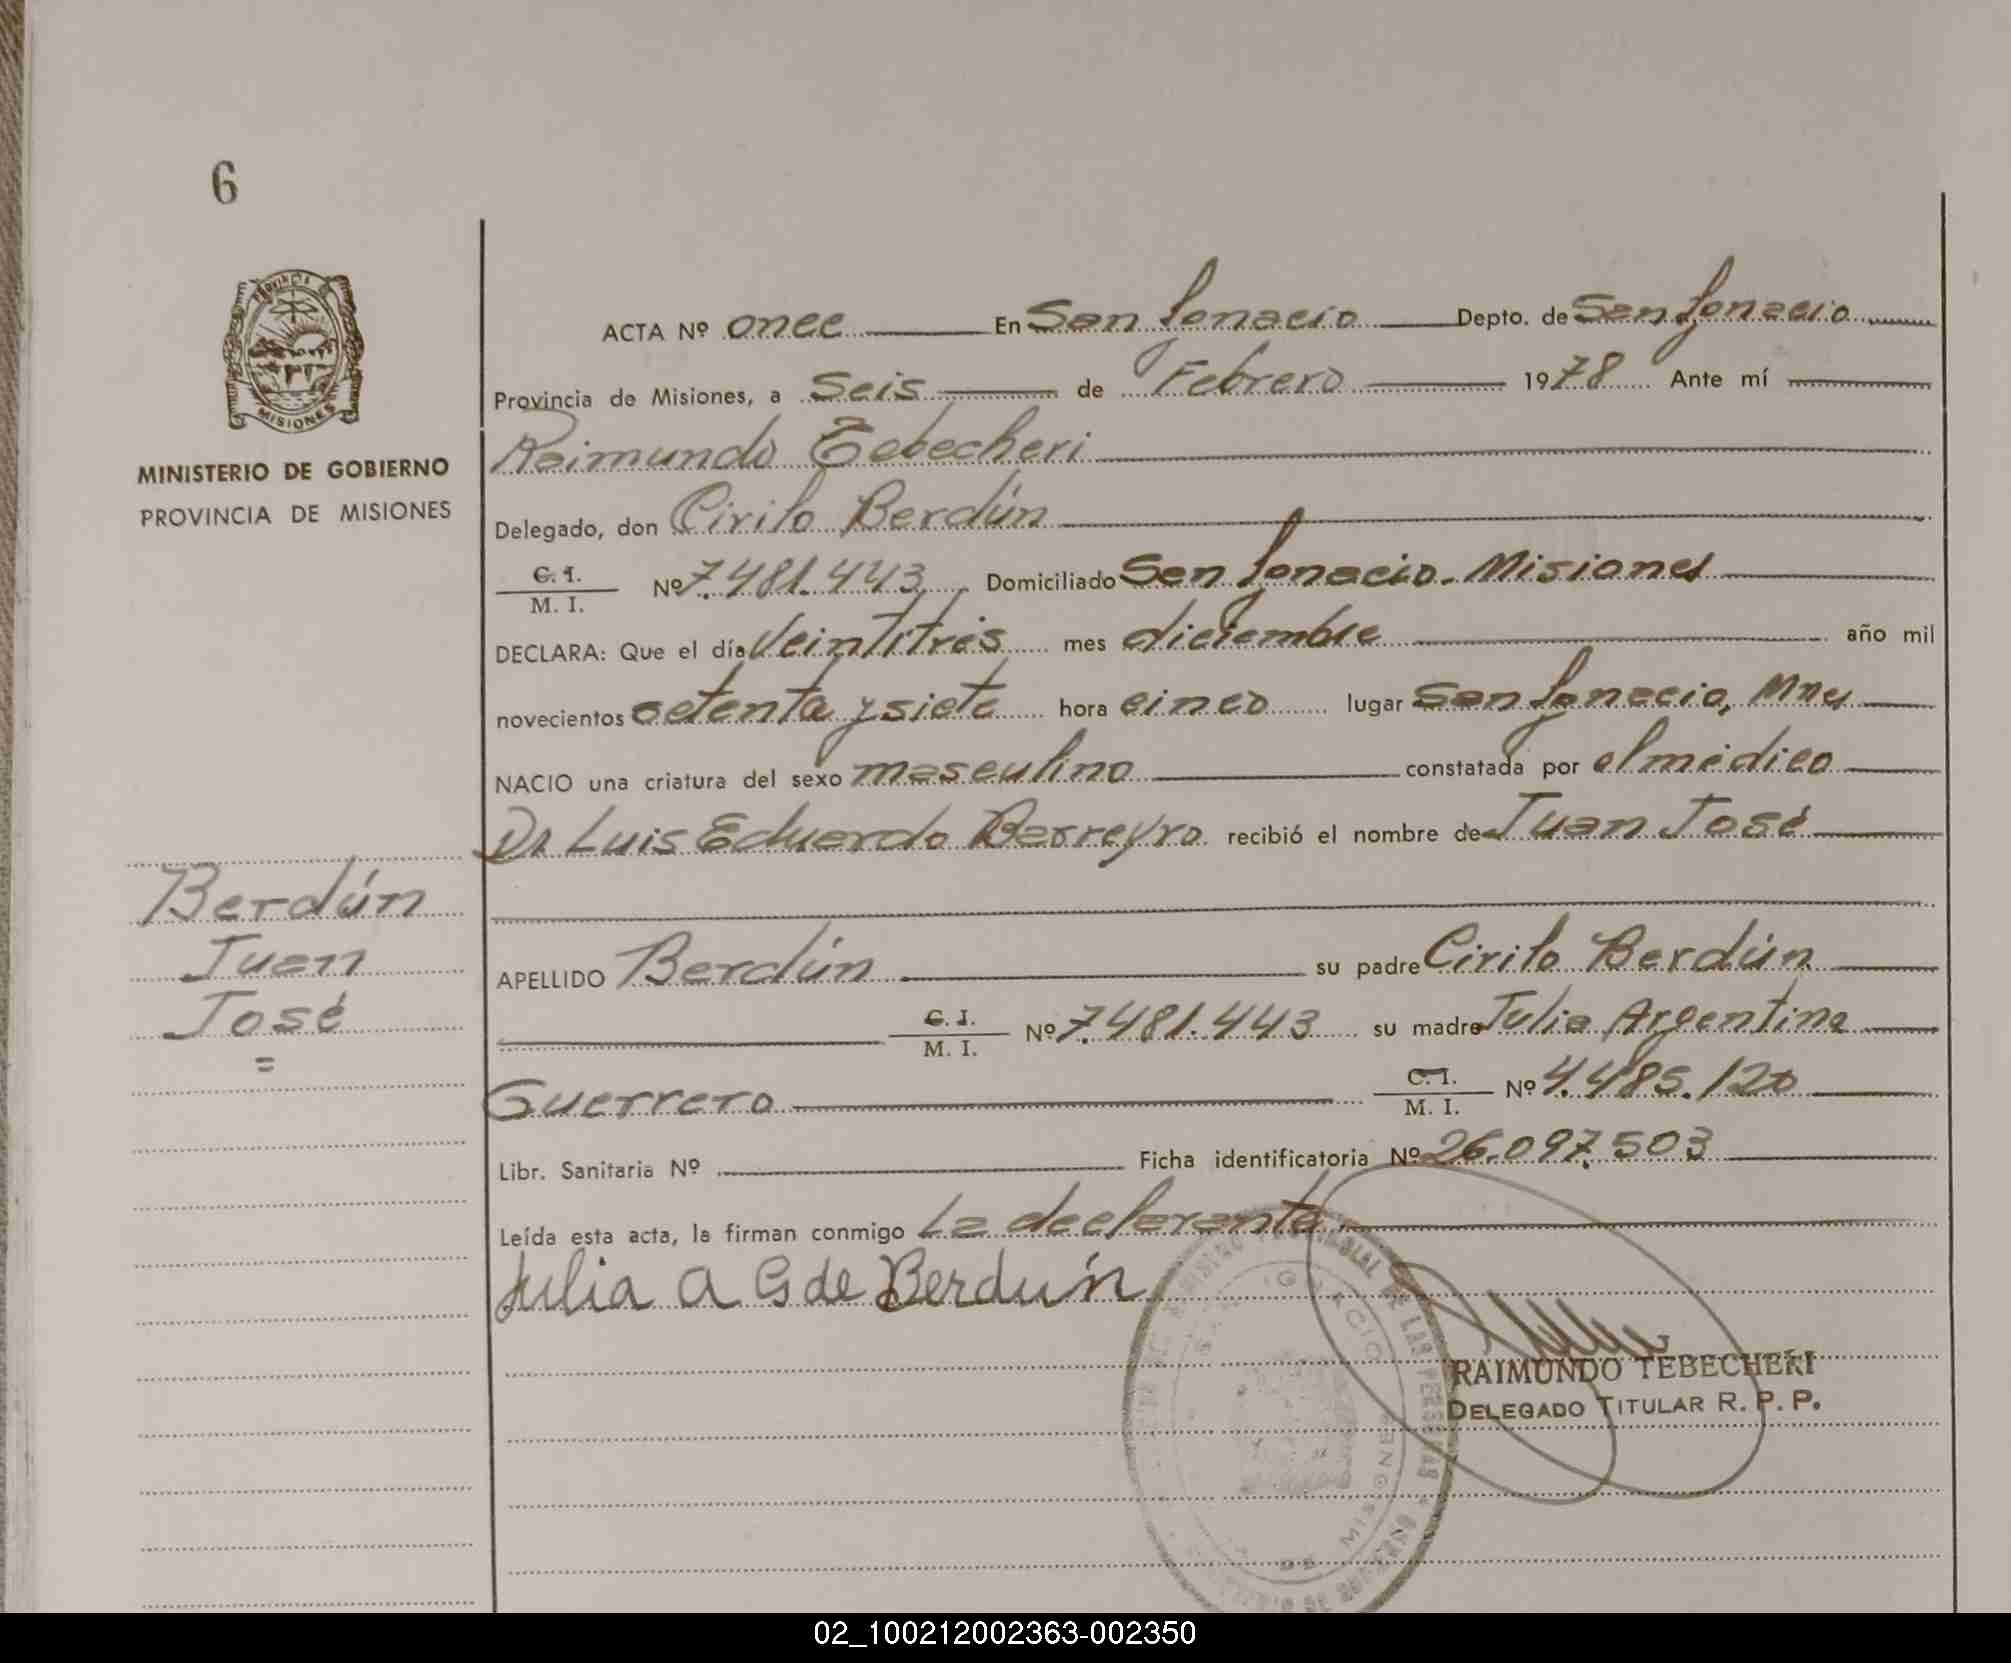 6
PROVINCIA
MISIONES
MINISTERIO DE GOBIERNO
PROVINCIA DE MISIONES
ACTA Nº once En San Ignacio Depto. de San Ignacio
Provincia de Misiones, a Seis de Febrero 1978 Ante mí
Raimundo Tebecheri
Delegado, don Cirilo Berdún
C. I.
M. I. Nº 7.481.443 Domiciliado San Ignacio. Misiones
DECLARA: Que el día Veintitrés mes diciembre año mil
novecientos setenta y siete hora cinco lugar San Ignacio, Mnes
NACIO una criatura del sexo masculino constatada por el médico
Dr Luis Eduardo Barreyro recibió el nombre de Juan José
APELLIDO Berdún su padre Cirilo Berdún
C. I.
M. I. Nº 7.481.443 su madre Julia Argentina
Guerrero C. I.
M. I. Nº 4.485.120
Libr. Sanitaria Nº Ficha identificatoria Nº 26.097.503
Leída esta acta, la firman conmigo La declarante.
Julia A G de Berdún
Berdún
Juan
José
=
RAIMUNDO TEBECHERI
DELEGADO TITULAR R. P. P.
DE LAS PERSONAS
IGNACIO
MISIONES
02_100212002363-002350